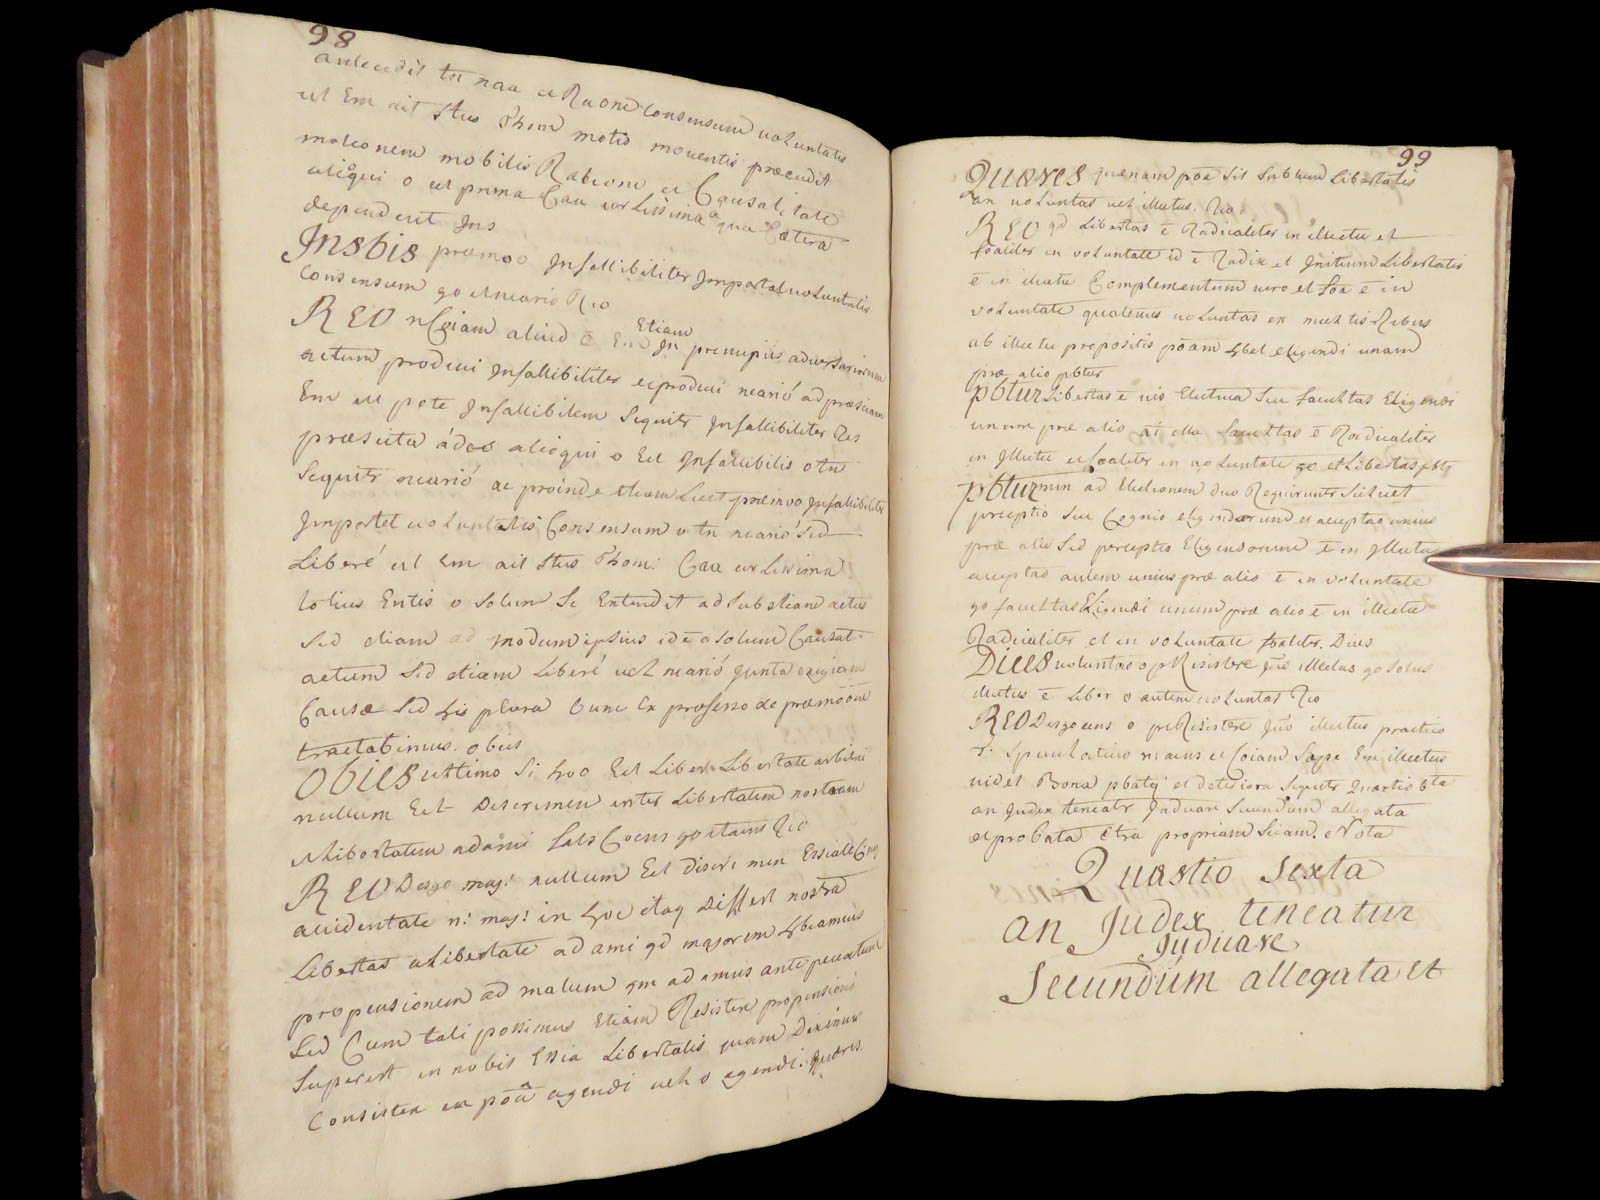 98
antecedit tn naa et Raone Consensum voluntatis
ut Em ait Stus Thom motio moventis præcedit
motionem mobilis Ratione et Causalitate
alioqui o est prima Cau a qua Cætera
dependent Ins
Instbis præmoo Infallibiliter Importat voluntatis
Consensum go et neario Rio
REO Etiam
actum produci Infallibiliter et produci neario ad præsciam
Em Infallibilem Sequitr Infallibiliter Res
præscita adeo alioqui o Est Infallibilis o tn
Sequitr neario ac proinde etiam Licet præmoo Infallibiliter
Importet voluntatis Consensum o tn neario Sed
Liberé ut Em ait Stus Thom: Caa
totius Entis o Solum Se Extendit ad Substiam actus
Sed etiam ad modum ipsius id ē o Solum Causat
actum Sed etiam Liberé vel neario juxta exigiam
Causæ Sed his plura Cum Ex professo de præmoone
tractabimus. obies
OBIIES ultimo Si hoo Est Liber Libertate arbitrii
nullum Est Discrimen inter Libertatem nostram
et Libertatem adami Sals Coens go stams Rio
REO Disgo maj: nullum Est discrimen Essiale Cing
accidentale n: maj: in hoc itaq Differt nostra
Libertas a Libertate adami qd majorem hbeamus
propensionem ad malum qm adamus ante peccatum
Sed Cum tali possimus Etiam Resistere propensioni
Superest in nobis Essia Libertatis quam Diximus
Consistere in poā agendi vel o agendi. Quæres.
99
QUÆRES quænam poā Sit Subtum Libertatis
an voluntas vel illectus. Rio:
REO qd Libertas ē Radicaliter in illectu et
foaliter in voluntate id ē Radix et Initium Libertatis
ē in illectu Complementum vero et foa ē in
voluntate quatenus voluntas ex multis Rebus
ab illectu propositis poām hbet eligendi unam
præ alio pbtur
pbtur Libertas ē vis Electiva Seu facultas Eligendi
unum præ alio at illa facultas ē Radicaliter
in Illectu et foaliter in voluntate go et Libertas pbtr
pbtur min ad Electionem duo Requiruntr Scilicet
perceptio Seu Cognio eligendorum et acceptao unius
præ alio Sed perceptio Eligendorum ē in Illectu
acceptao autem unius præ alio ē in voluntate
go facultas Eligendi unum præ alio ē in illectu
Radicaliter et in voluntate foaliter. Dices
DICES voluntas o pt Resistere jud illectus go Solus
illectus ē Liber o autem voluntas Rio
REO Disgo ans o pt Resistere Jud illectus practico
Speculativo n: ans et Coiam Sæpe Em illectus
videt Bona pbatq et deteriora Sequitr Quæstio 6ta
an Judex teneatr Judicare Secundum allegata
et probata ctra propriam Sciam. Nota
Quæstio Sexta
an Judex teneatur
Judicare
Secundùm allegata et